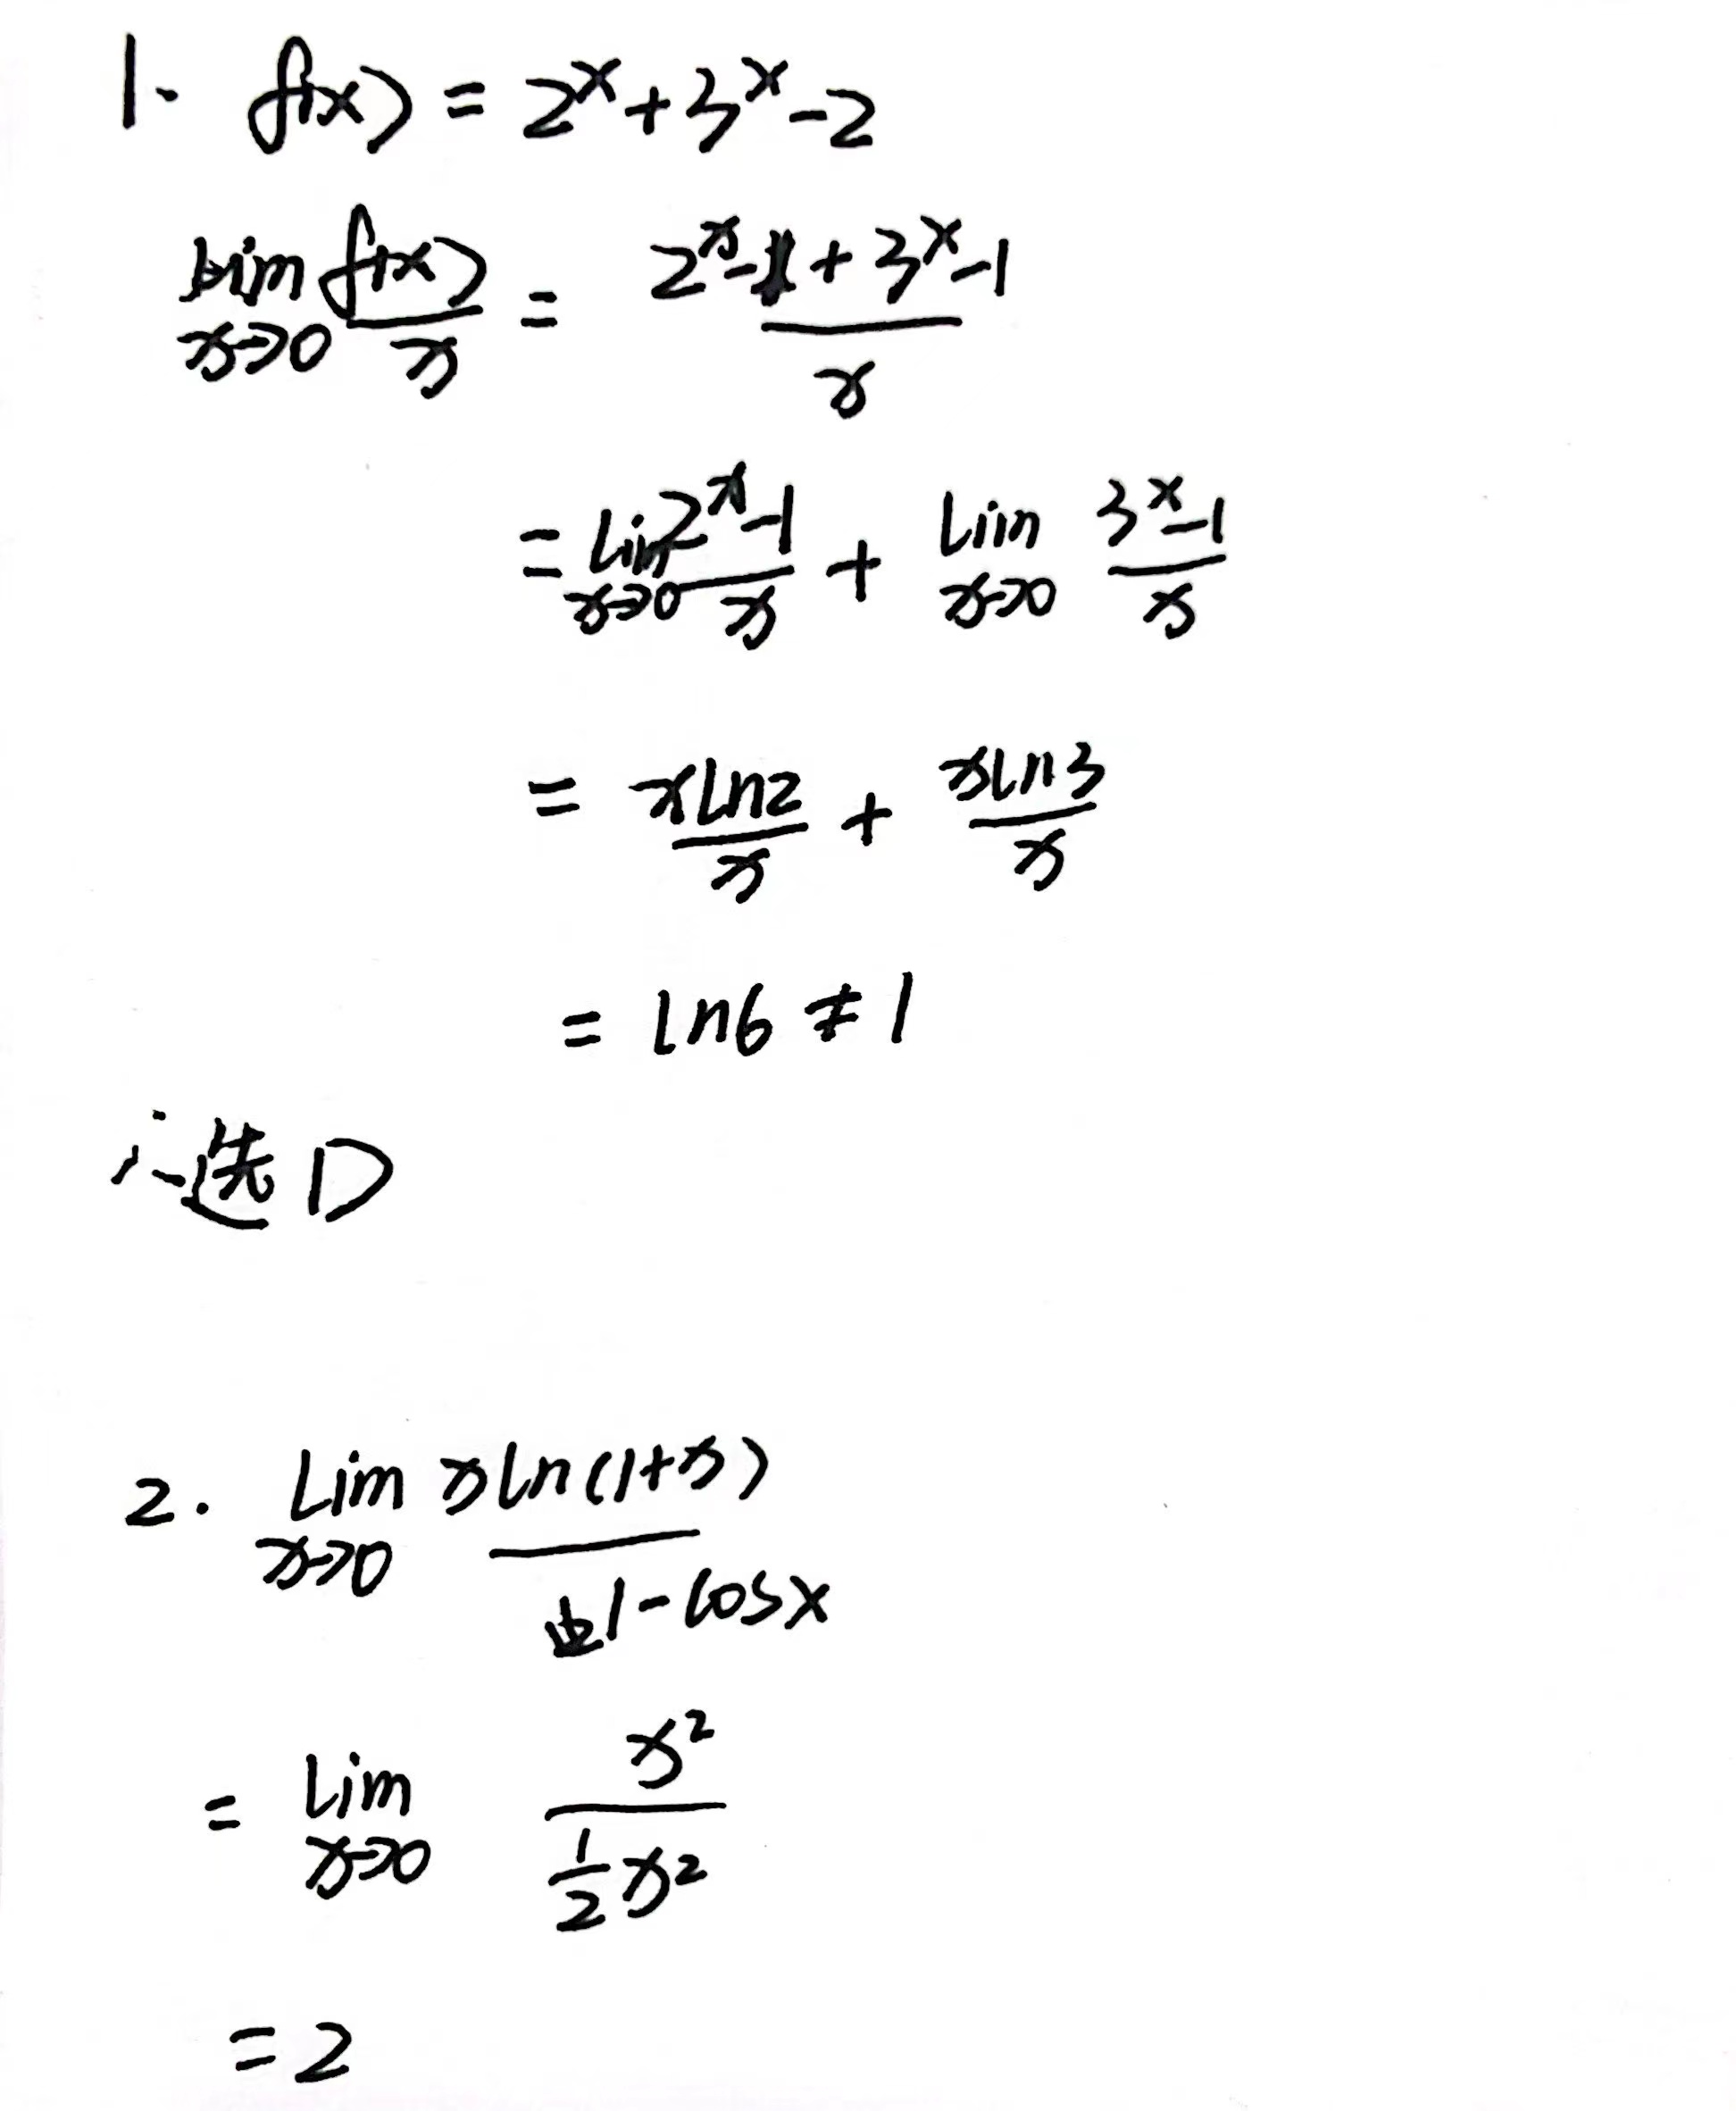 1. f(x) = 2^x + 3^x - 2
lim x→0 f(x)/x = (2^x - 1 + 3^x - 1)/x
= lim x→0 (2^x - 1)/x + lim x→0 (3^x - 1)/x
= xln2/x + xln3/x
= ln6 ≠ 1
∴选D
2. lim x→0 xln(1+x)/(1-cosx)
= lim x→0 x²/(½x²)
= 2